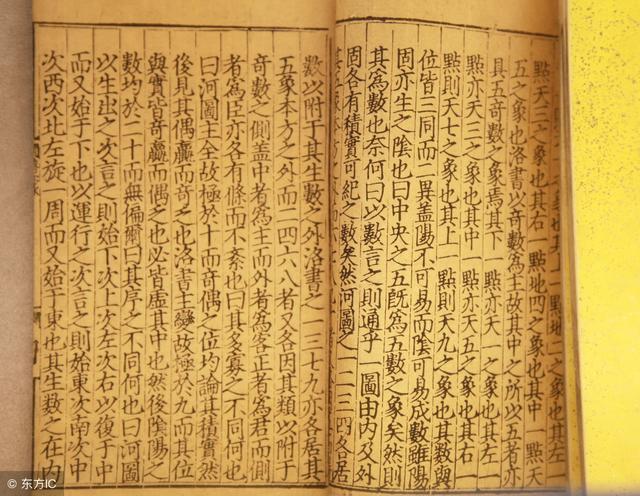 其上一點地二之象也其左
點天三之象也其右一點地四之象也其中一點天
五之象也洛書以奇數為主故其中之所以五者亦
具五奇數之象焉其下一點亦天一之象也其左一
點亦天三之象也其中一點亦天五之象也其右一
點則天七之象也其上一點則天九之象也其數與
位皆三同而二異蓋陽不可易而陰可易成數雖陽
固亦生之陰也曰中央之五既爲五數之象矣然則
其爲數也奈何曰以數言之則通乎一圖由內及外
固各有積實可紀之數矣然河圖之一二三四各居
數以附于其生數之外洛書之一三七九亦各居其
五象本方之外而二四六八者又各因其類以附于
奇數之側蓋中者爲主而外者爲客正者爲君而側
者爲臣亦各有條而不紊也曰其多寡之不同何也
曰河圖主全故極於十而奇偶之位均論其積實然
後見其偶贏而奇乏也洛書主變故極於九而其位
與實皆奇贏而偶乏也必皆虛其中也然後陰陽之
數均於二十而無偏爾曰其序之不同何也曰河圖
以生出之次言之則始下次上次左次右以復于中
而又始于下也以運行之次言之則始東次南次中
次西次北左旋一周而又始于東也其生數之在內
© 东方IC